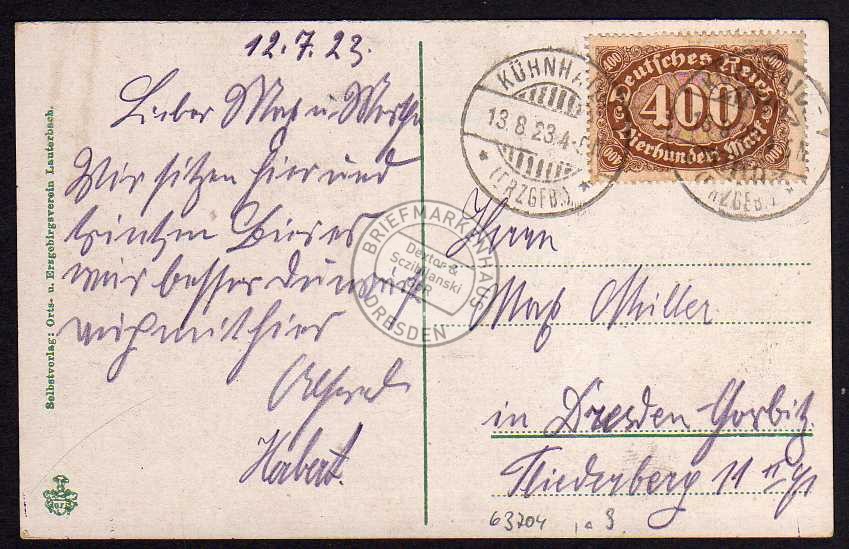 12.7.23.
Lieber Max u. Martha
Wir sitzen hier und
trinken Bier es
wir besser du
mit hier
Alfred
Herbert.
Selbstverlag: Orts- u. Erzgebirgsverein Lauterbach.
KÜHNHAI
13.8.23.4-5
* (ERZGEB.) *
Deutsches Reich
400
400
400
400
400
Vierhundert Mark
(ERZGEB.) *
BRIEFMARKENHAUS
Dexter &
Sczibilanski
GbR
DRESDEN
Herrn
Max Müller
in Dresden Gorbitz.
Niederberg 11 II
63704